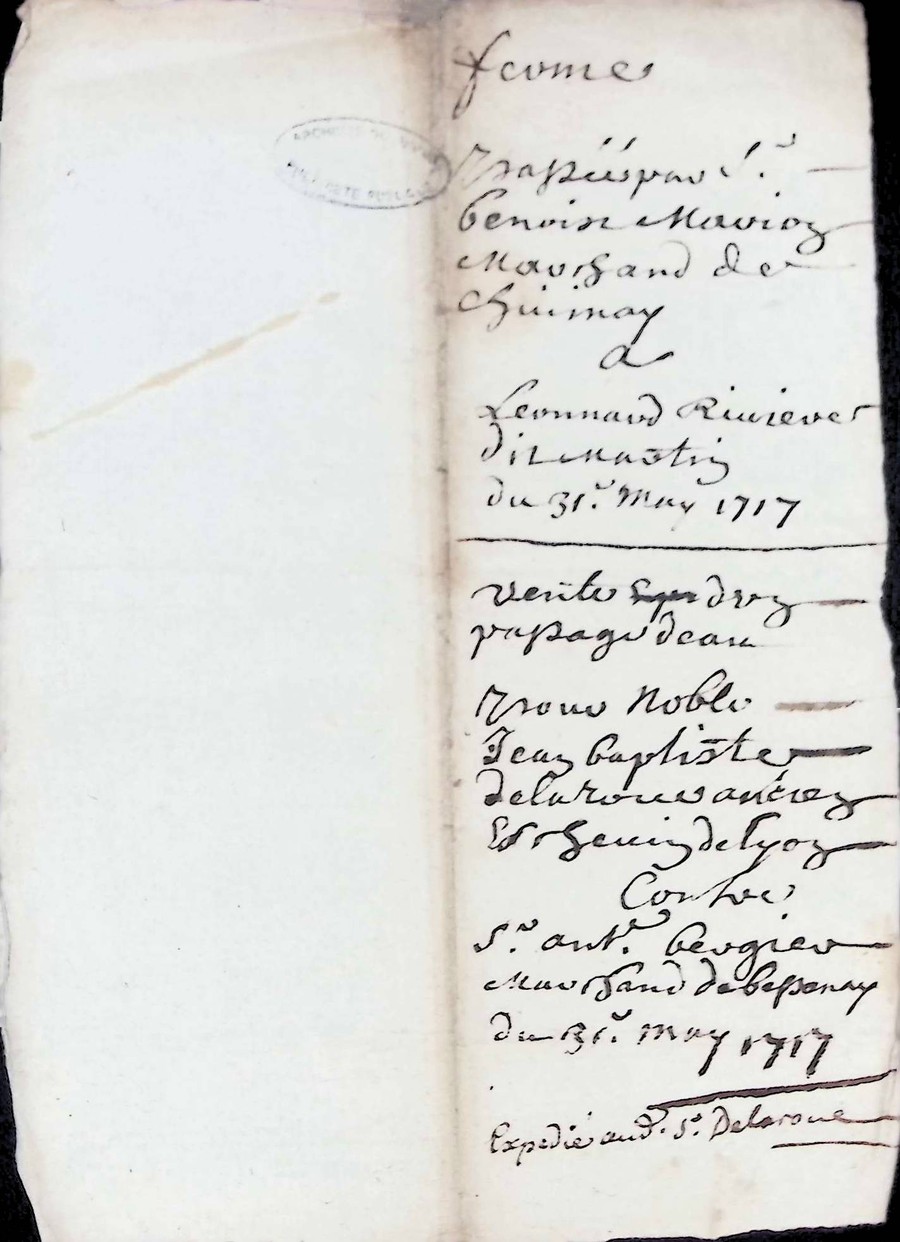 ferme
passée par S.r
benoist Marion
Marchand de
Chiinay
a
Leonnard Riuiere
dit Martin
du 31.e May 1717
vente de
passage deau
Pour Noble
Jean baptiste
delaroue antien
Escheuin de lyon
Contre
S.r ant.e bergier
Marchand de bessenay
du 31.e May 1717
Expedié aud. S.r Delaroue